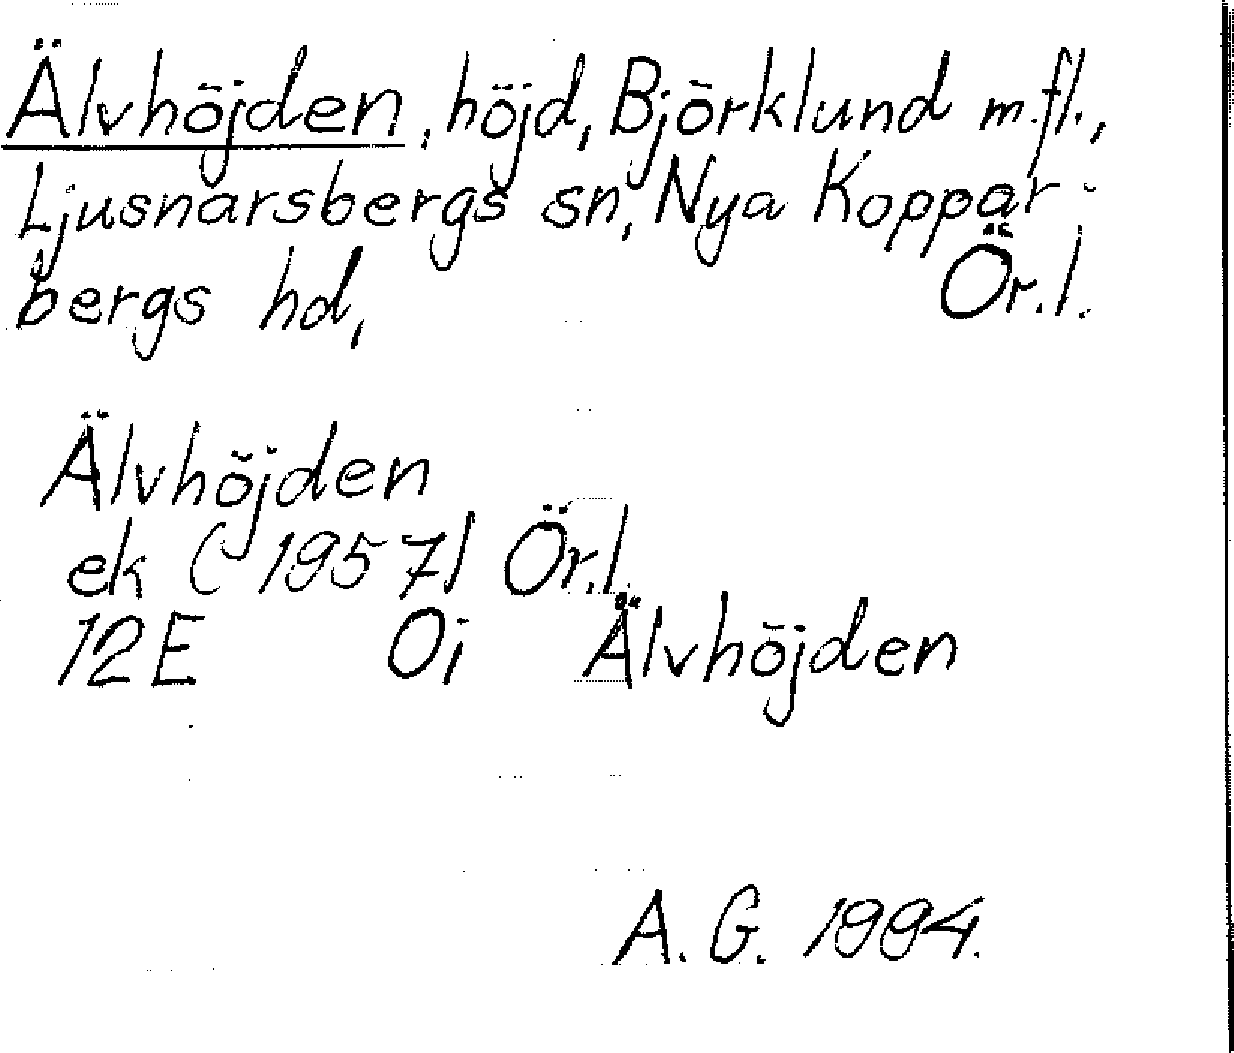 Älvhöjden, höjd, Björklund m.fl.,
Ljusnarsbergs sn, Nya Koppar-
bergs hd, Ör.l.
Älvhöjden
ek (-1957) Ör.l.
12E 0i Älvhöjden
A.G. 1994.